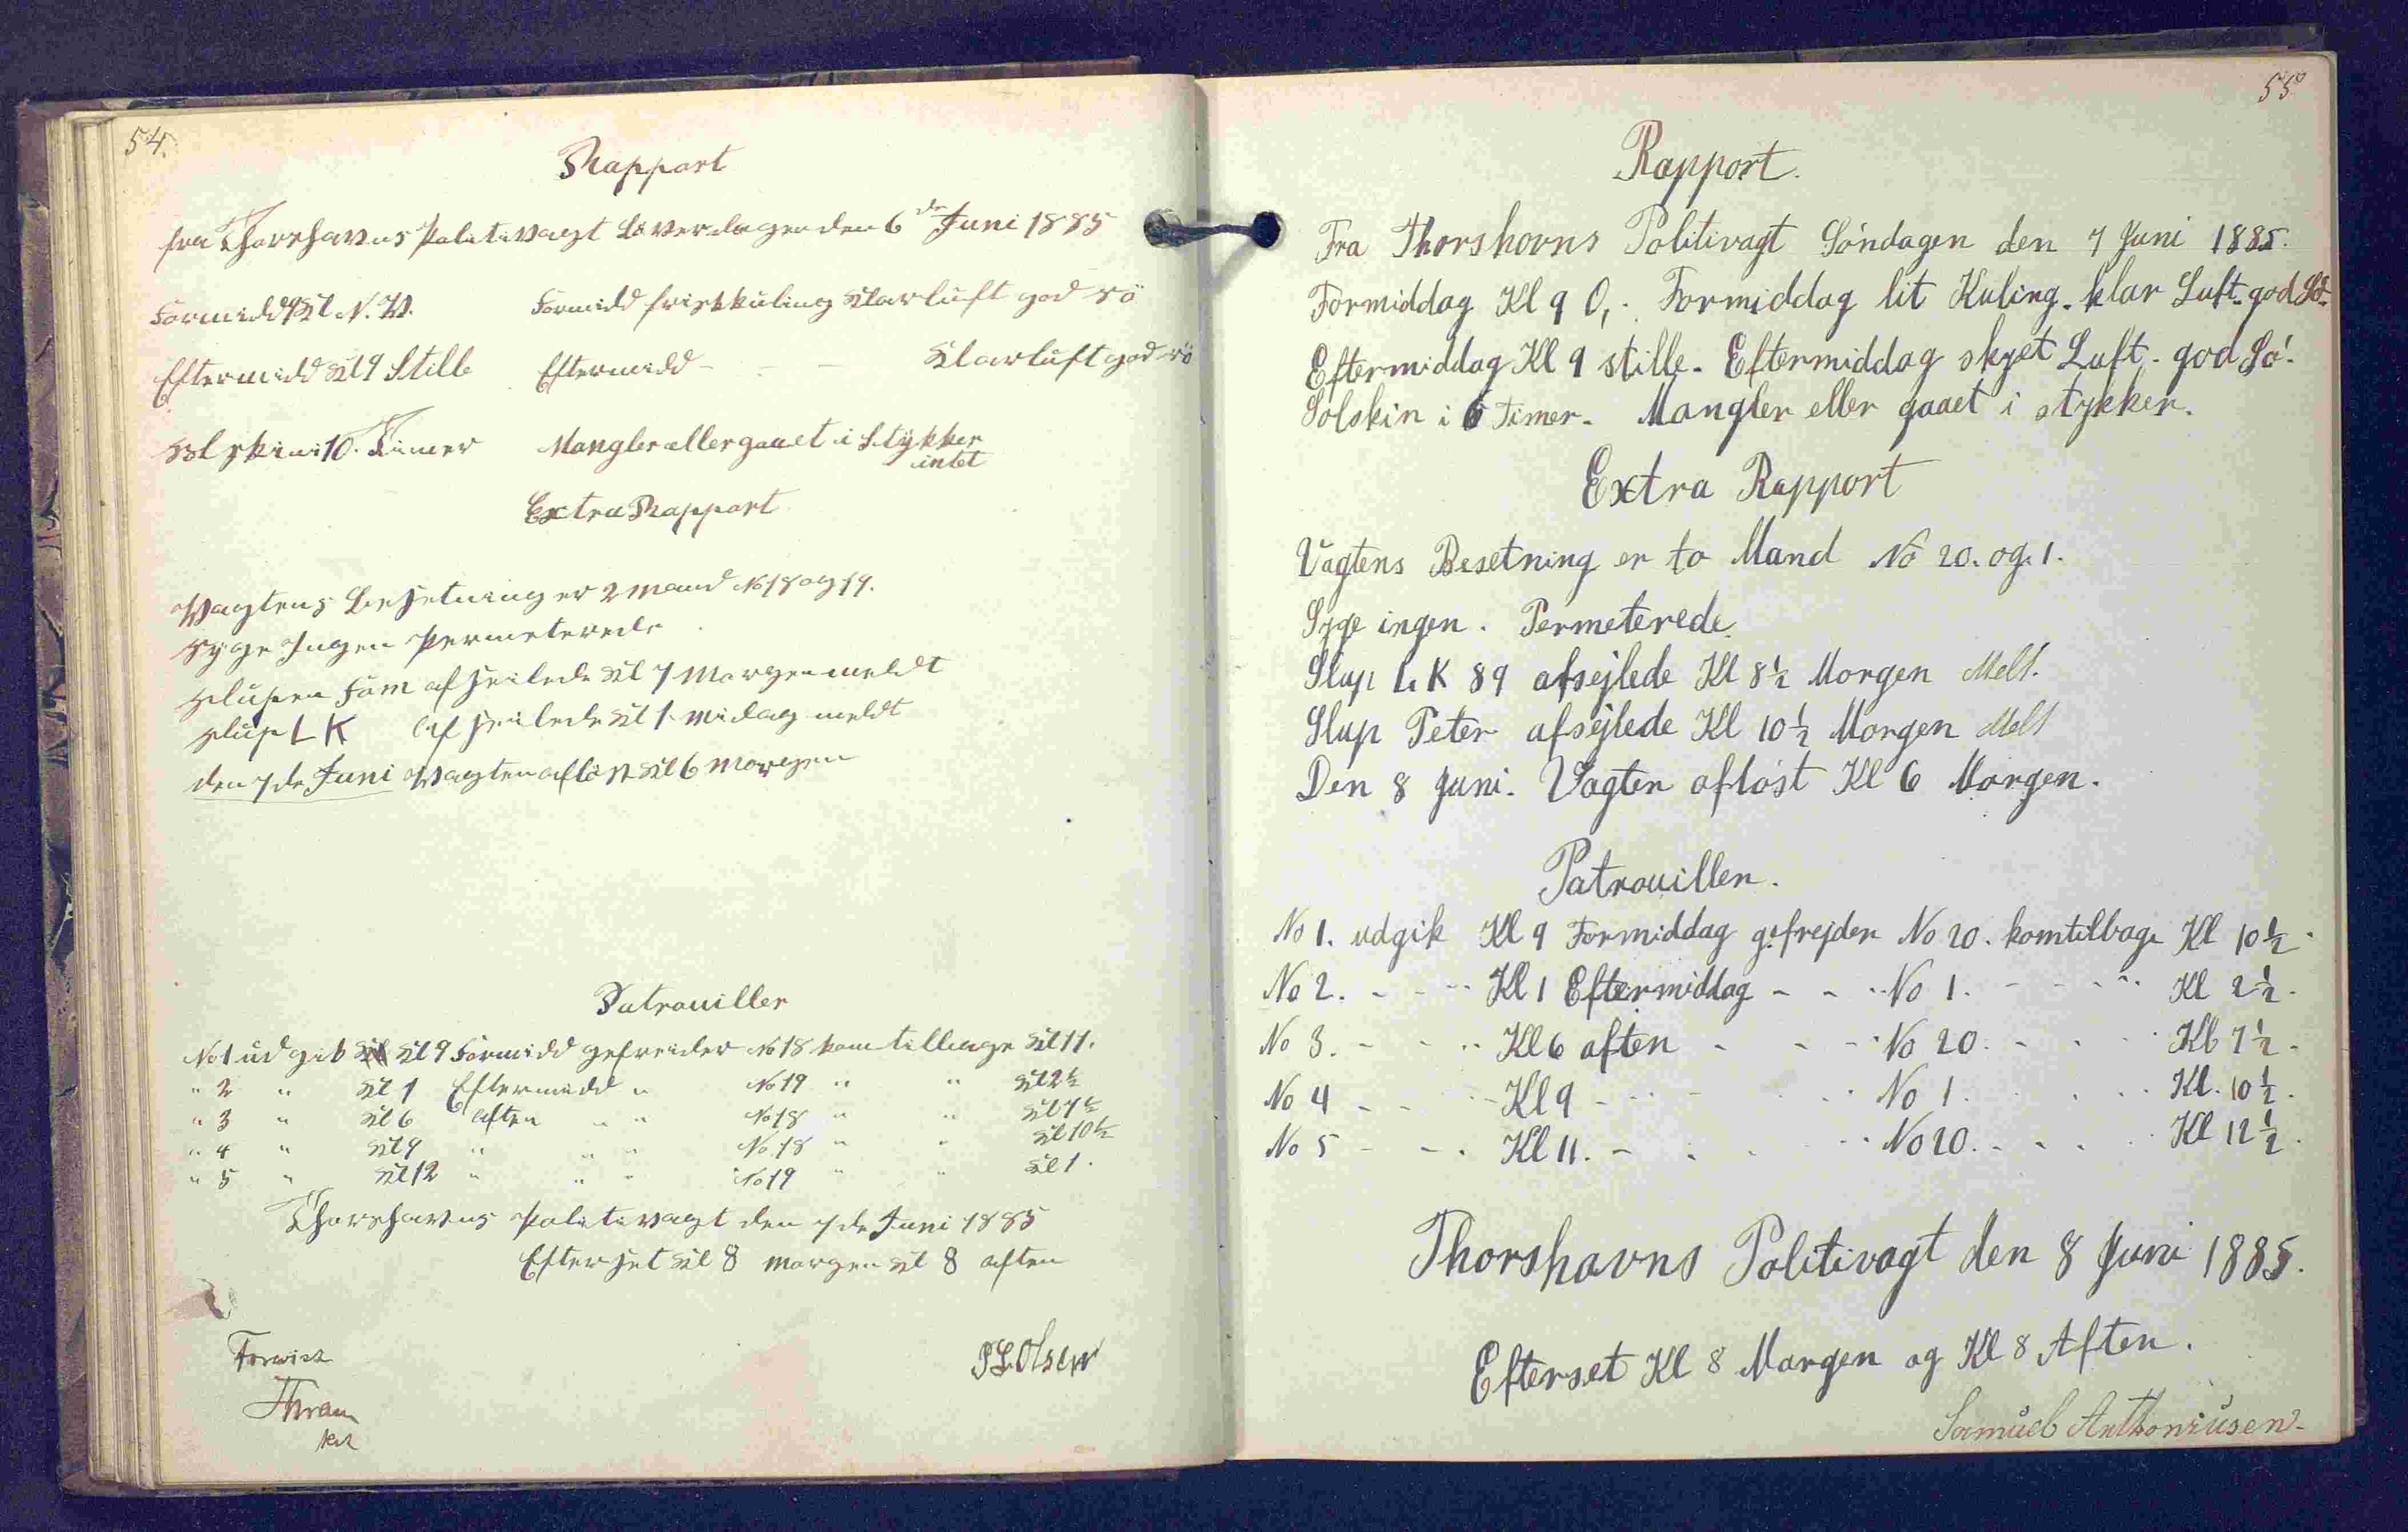 54.
Rapport
fra Thorshavns Politivagt Löverdagen den 6de Juni 1885
Formidd 9 Kl. N.V. Formidd friskkuling Klarluft god Sö
Eftermidd Kl 9 Stille Eftermidd - - - Klarluft god Sö
Solskin i 10. Timer Mangler eller gaaet i Stykker
intet
Extra Rapport
Vagtens Besetning er 2 Mand No 18 og 19.
Syge Ingen Permeterede
Slupen Fam afseilede Kl 7 Morgen meldt
Slup L K afseilede Kl 1 Midag meldt
den 7de Juni Vagten aflöst Kl 6 Morgen
Patrouiller
No 1 udgik Kl 9 Formidd gefreider No 18 kom tilbage Kl 11.
" 2 " Kl 1 Eftermidd " No 19 " " Kl 2½
" 3 " Kl 6 Aften " " No 18 " " Kl 7½
" 4 " Kl 9 " " " No 18 " " Kl 10½
" 5 " Kl 12 " " " No 19 " " Kl 1.
Thorshavns Politivagt den 7de Juni 1885
Efterset Kl 8 Morgen Kl 8 aften
PLOlsen
55
Rapport.
Fra Thorshavns Politivagt Söndagen den 7 Juni 1885.
Formiddag Kl 9 O,. Formiddag lit Kuling. klar Luft. god Sö.
Eftermiddag Kl 9 stille. Eftermiddag skyet Luft. god Sö.
Solskin i 6 Timer. Mangler eller gaaet i stykker.
Extra Rapport
Vagtens Besetning er to Mand No 20. og. 1.
Syge ingen. Permeterede.
Slup L. K 89 afsejlede Kl 8½ Morgen Melt.
Slup Peter afsejlede Kl 10½ Morgen Melt
Den 8 Juni. Vagten aflöst Kl 6 Morgen.
Patrouillen.
No 1. udgik Kl 9 Formiddag gefrejder No 20. komtilbage Kl 10½.
No 2. - - - Kl 1 Eftermiddag - - - No 1. - - - Kl 2½.
No 3. - - - Kl 6 aften - - - No 20. - - - Kl 7½.
No 4 - - - Kl 9 - - - No 1. - - - Kl. 10½.
No 5 - - - Kl 11. - - - No 20. - - - Kl 12½.
Thorshavns Politivagt den 8 Juni 1885.
Efterset Kl 8 Morgen og Kl 8 Aften.
Samuel Anthoniusen.